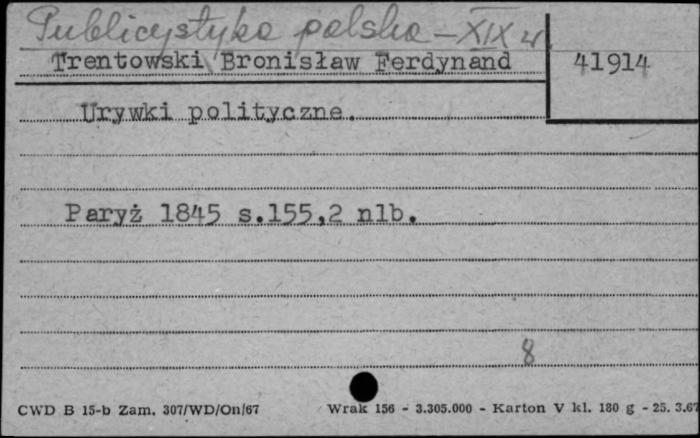 Publicystyka polska – XIX w.
Trentowski Bronisław Ferdynand
41914
Urywki polityczne.
Paryż 1845 s.155,2 nlb.
8
CWD B 15-b Zam. 307/WD/On/67 Wrak 156 - 3.305.000 - Karton V kl. 180 g - 25. 3.67